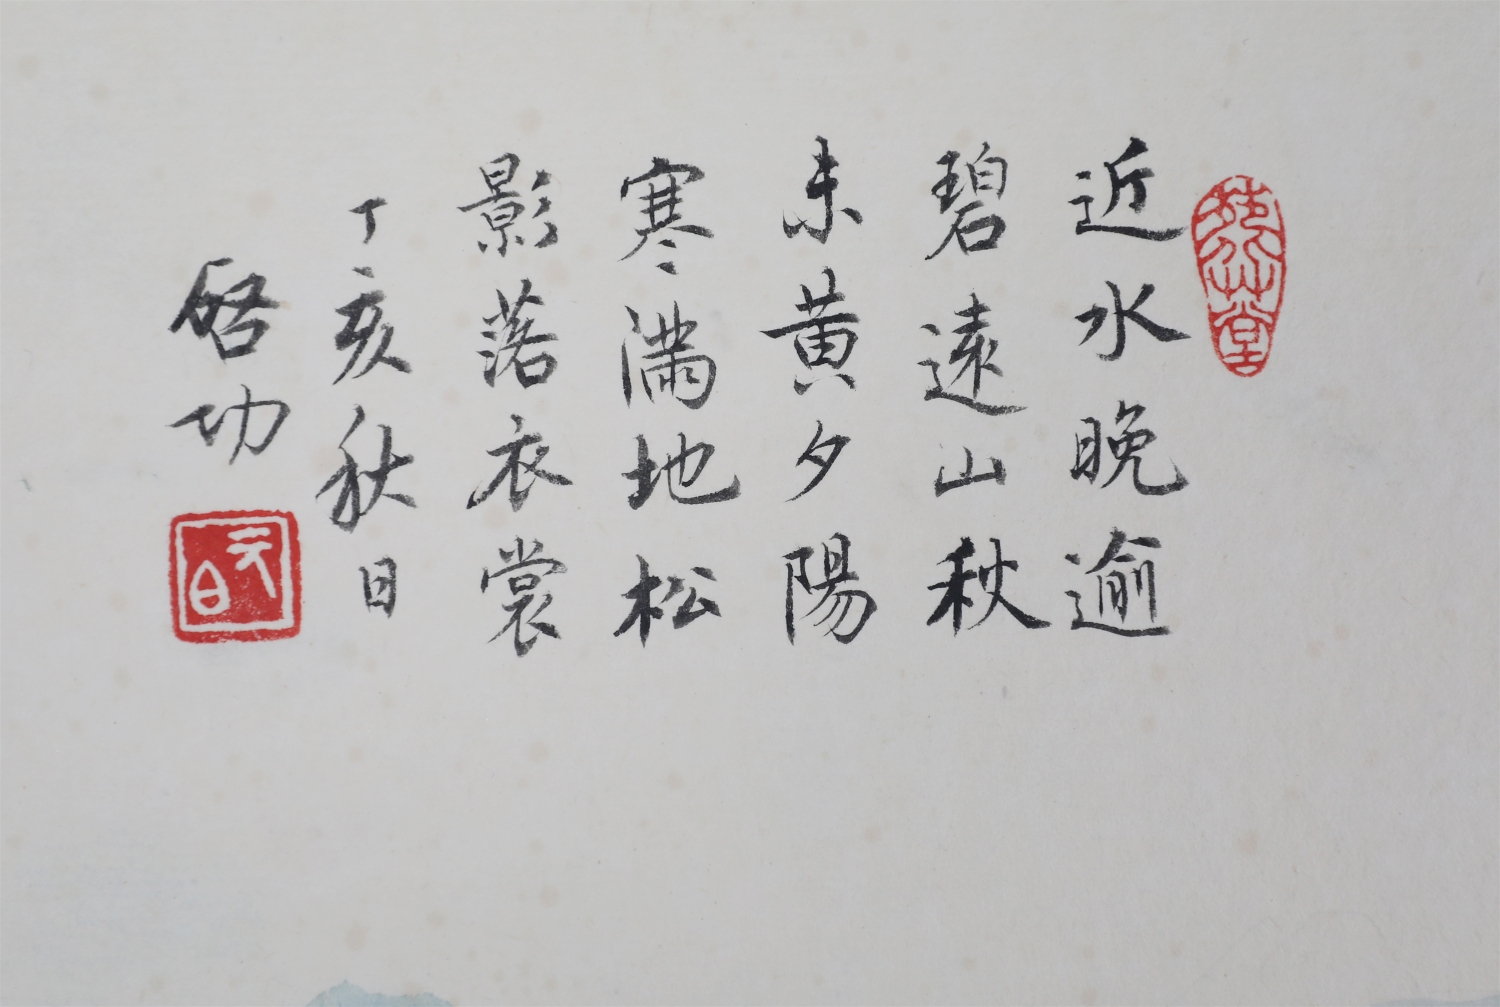 近水晚逾
碧遠山秋
未黃夕陽
寒滿地松
影落衣裳
丁亥秋日
啓功
元白